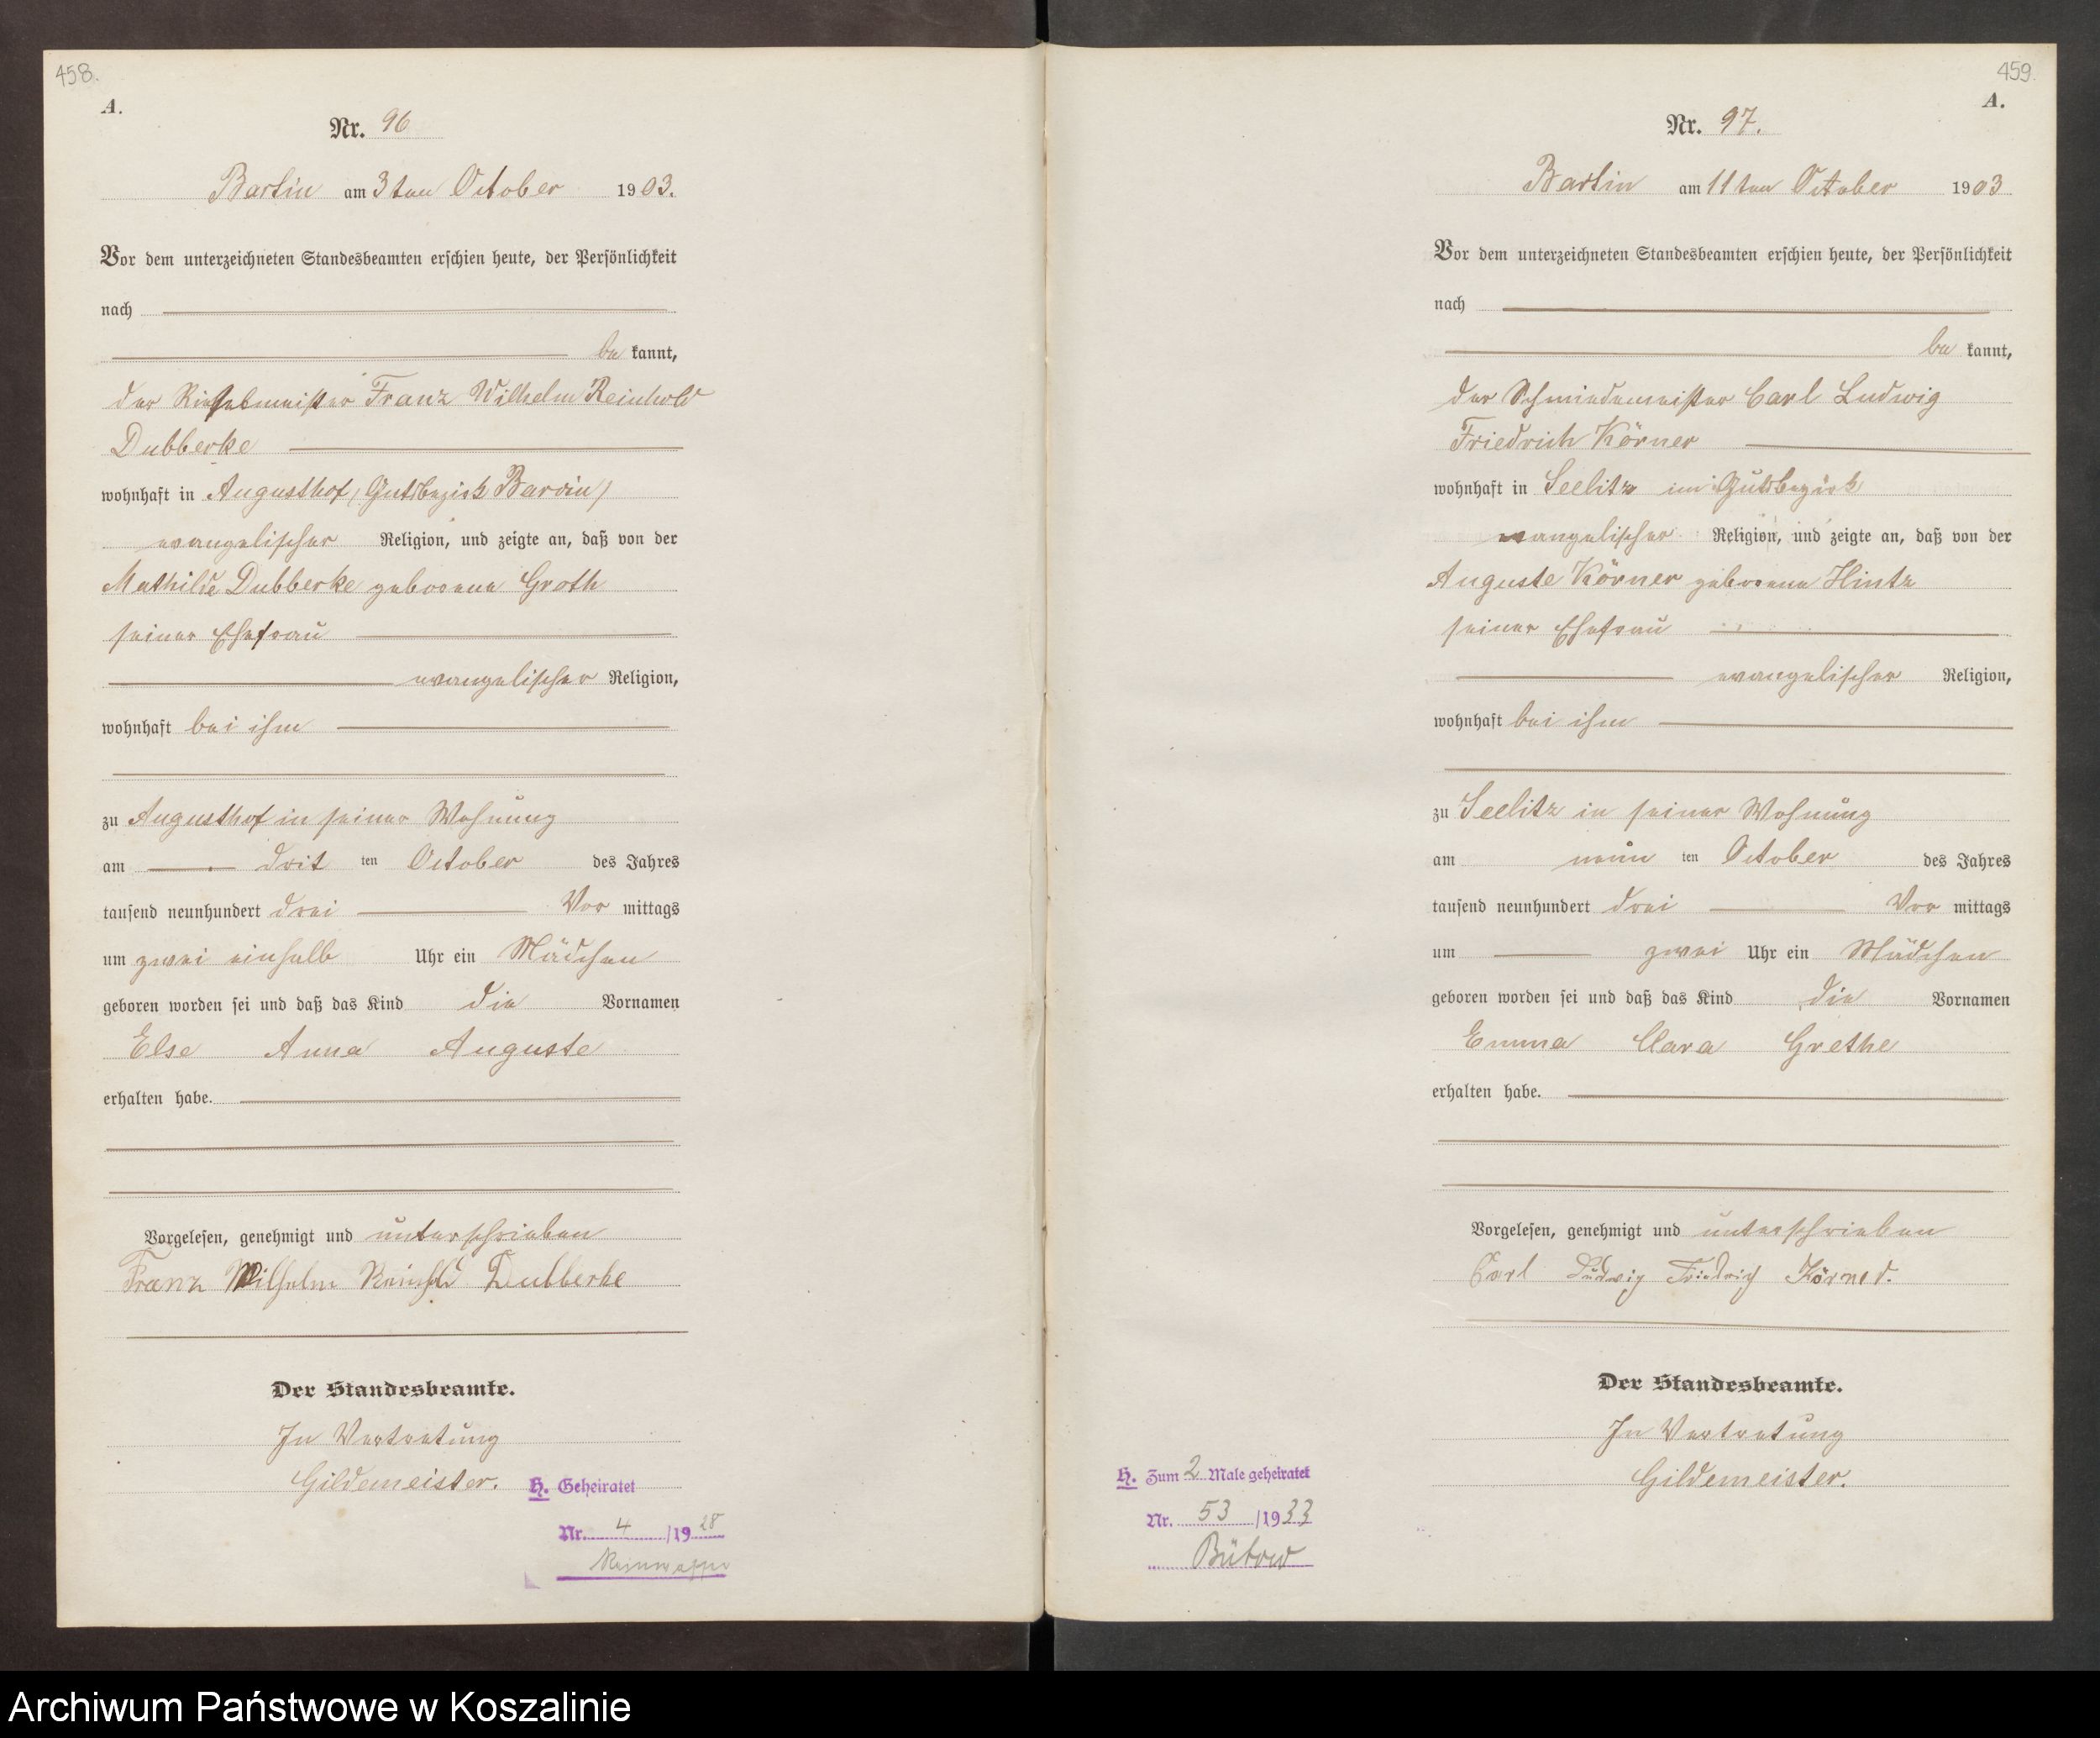 458.
A.
Nr. 96
Bartin am 3ten October 1903.
Vor dem unterzeichneten Standesbeamten erschien heute, der Persönlichkeit
nach
be kannt,
der Rieselmeister Franz Wilhelm Reinhold
Dubberke
wohnhaft in Augusthof, (Gutsbezirk Barvin)
evangelischer Religion, und zeigte an, daß von der
Mathilde Dubberke geborene Groth
seiner Ehefrau
evangelischer Religion,
wohnhaft bei ihm
zu Augusthof in seiner Wohnung
am drit ten October des Jahres
tausend neunhundert drei Vor mittags
um zwei einhalb Uhr ein Mädchen
geboren worden sei und daß das Kind die Vornamen
Else Anna Auguste
erhalten habe.
Vorgelesen, genehmigt und unterschrieben
Franz Wilhelm Reinhold Dubberke
Der Standesbeamte.
In Vertretung
Gildemeister.
H. Geheiratet
Nr. 4 /1928
459.
A.
Nr. 97.
Bartin am 11ten October 1903
Vor dem unterzeichneten Standesbeamten erschien heute, der Persönlichkeit
nach
be kannt,
der Schmiedemeister Carl Ludwig
Friedrich Körner
wohnhaft in Seelitz im Gutsbezirk
evangelischer Religion, und zeigte an, daß von der
Auguste Körner geborene Hintz
seiner Ehefrau
evangelischer Religion,
wohnhaft bei ihm
zu Seelitz in seiner Wohnung
am neun ten October des Jahres
tausend neunhundert drei Vor mittags
um zwei Uhr ein Mädchen
geboren worden sei und daß das Kind die Vornamen
Emma Clara Grethe
erhalten habe.
Vorgelesen, genehmigt und unterschrieben
Carl Ludwig Friedrich Körner.
Der Standesbeamte.
In Vertretung
Gildemeister.
H. Zum 2 Male geheiratet
Nr. 53 /1933
Bütow
Archiwum Państwowe w Koszalinie